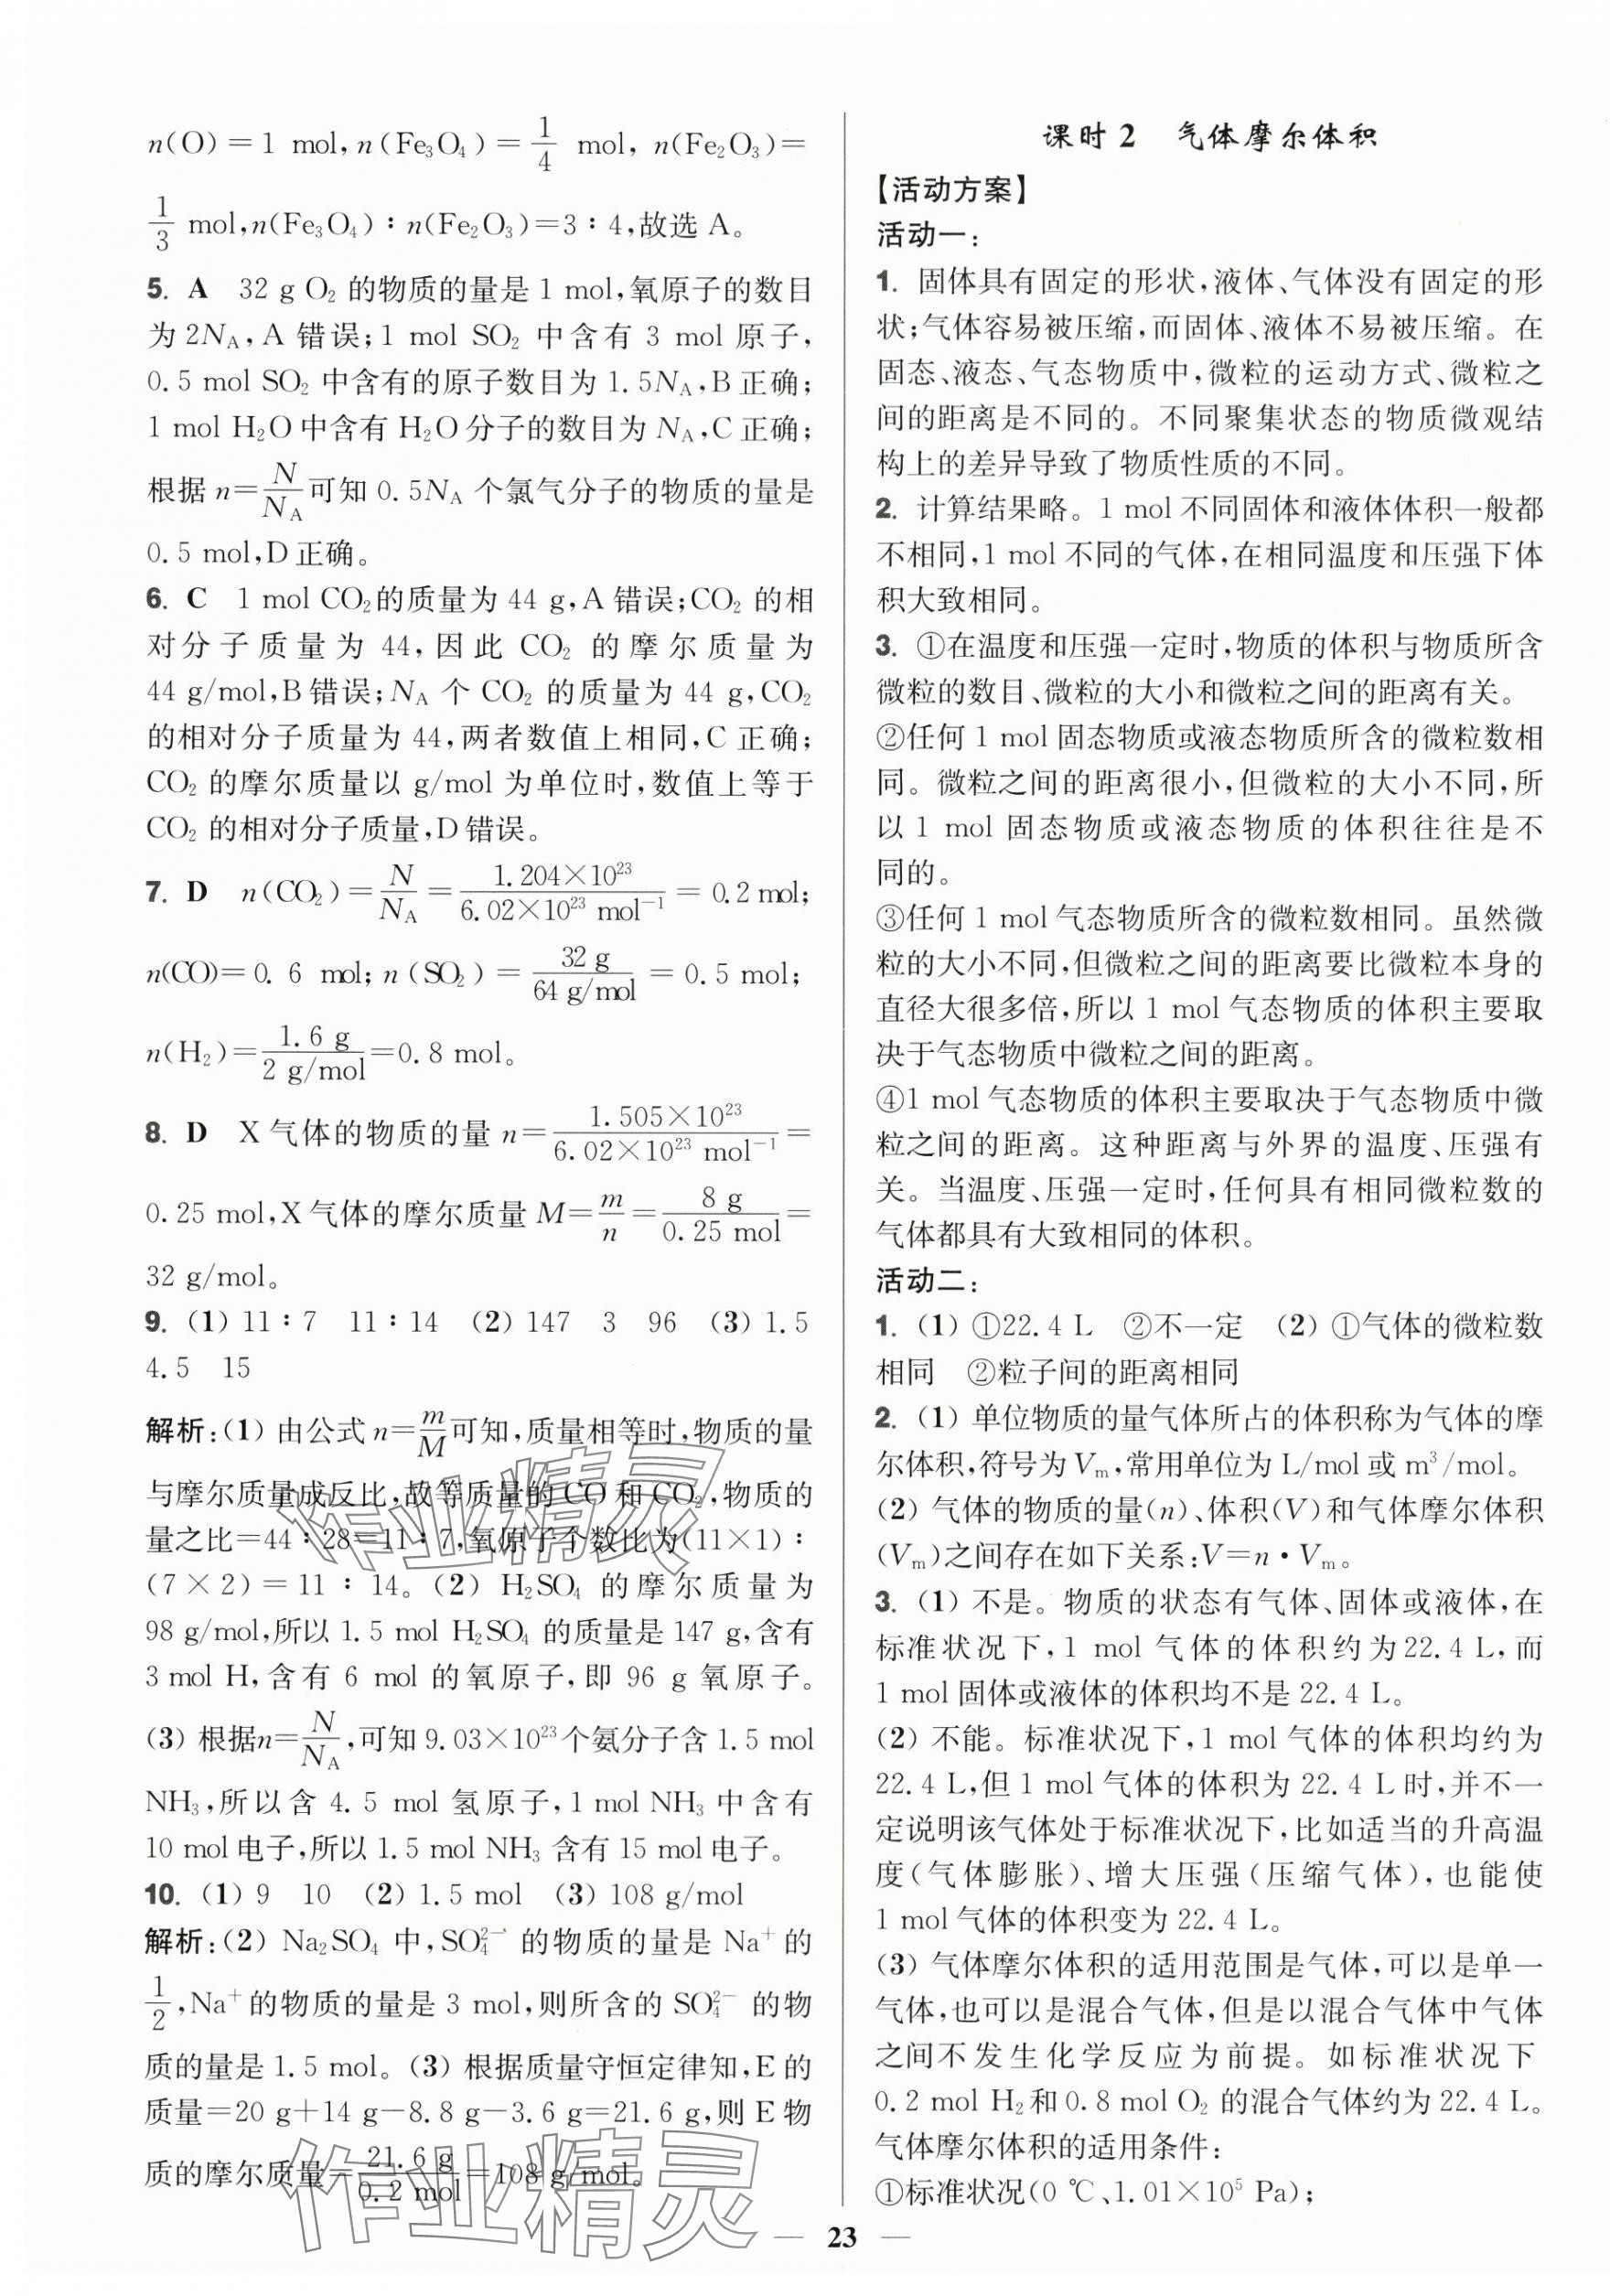 n(O)=1 mol,n(Fe₃O₄)=1/4 mol, n(Fe₂O₃)=
1/3 mol,n(Fe₃O₄)∶n(Fe₂O₃)=3∶4,故选 A。
5. A 32 g O₂ 的物质的量是 1 mol,氧原子的数目
为 2N_A,A 错误;1 mol SO₂ 中含有 3 mol 原子,
0.5 mol SO₂ 中含有的原子数目为 1.5N_A,B 正确;
1 mol H₂O 中含有 H₂O 分子的数目为 N_A,C 正确;
根据 n=N/N_A 可知 0.5N_A 个氯气分子的物质的量是
0.5 mol,D 正确。
6. C 1 mol CO₂的质量为 44 g,A 错误;CO₂ 的相
对分子质量为 44,因此 CO₂ 的摩尔质量为
44 g/mol,B 错误;N_A 个 CO₂ 的质量为 44 g,CO₂
的相对分子质量为 44,两者数值上相同,C 正确;
CO₂ 的摩尔质量以 g/mol 为单位时,数值上等于
CO₂ 的相对分子质量,D 错误。
7. D n(CO₂)=N/N_A=1.204×10²³/6.02×10²³ mol⁻¹=0.2 mol;
n(CO)=0.6 mol;n(SO₂)=32 g/64 g/mol=0.5 mol;
n(H₂)=1.6 g/2 g/mol=0.8 mol。
8. D X 气体的物质的量 n=1.505×10²³/6.02×10²³ mol⁻¹=
0.25 mol,X 气体的摩尔质量 M=m/n=8 g/0.25 mol=
32 g/mol。
9. (1) 11∶7 11∶14 (2) 147 3 96 (3) 1.5
4.5 15
解析:(1) 由公式 n=m/M可知,质量相等时,物质的量
与摩尔质量成反比,故等质量的 CO 和 CO₂,物质的
量之比=44∶28=11∶7,氧原子个数比为(11×1)∶
(7×2)=11∶14。(2) H₂SO₄ 的摩尔质量为
98 g/mol,所以 1.5 mol H₂SO₄ 的质量是 147 g,含有
3 mol H,含有 6 mol 的氧原子,即 96 g 氧原子。
(3) 根据n=N/N_A,可知 9.03×10²³个氨分子含 1.5 mol
NH₃,所以含 4.5 mol 氢原子,1 mol NH₃ 中含有
10 mol 电子,所以 1.5 mol NH₃ 含有 15 mol 电子。
10. (1) 9 10 (2) 1.5 mol (3) 108 g/mol
解析:(2) Na₂SO₄ 中,SO₄²⁻ 的物质的量是 Na⁺ 的
1/2,Na⁺的物质的量是 3 mol,则所含的 SO₄²⁻ 的物
质的量是 1.5 mol。(3) 根据质量守恒定律知,E 的
质量=20 g+14 g-8.8 g-3.6 g=21.6 g,则 E 物
质的摩尔质量=21.6 g/0.2 mol=108 g/mol。
课时 2 气体摩尔体积
【活动方案】
活动一:
1. 固体具有固定的形状,液体、气体没有固定的形
状;气体容易被压缩,而固体、液体不易被压缩。在
固态、液态、气态物质中,微粒的运动方式、微粒之
间的距离是不同的。不同聚集状态的物质微观结
构上的差异导致了物质性质的不同。
2. 计算结果略。1 mol 不同固体和液体体积一般都
不相同,1 mol 不同的气体,在相同温度和压强下体
积大致相同。
3. ①在温度和压强一定时,物质的体积与物质所含
微粒的数目、微粒的大小和微粒之间的距离有关。
②任何 1 mol 固态物质或液态物质所含的微粒数相
同。微粒之间的距离很小,但微粒的大小不同,所
以 1 mol 固态物质或液态物质的体积往往是不
同的。
③任何 1 mol 气态物质所含的微粒数相同。虽然微
粒的大小不同,但微粒之间的距离要比微粒本身的
直径大很多倍,所以 1 mol 气态物质的体积主要取
决于气态物质中微粒之间的距离。
④1 mol 气态物质的体积主要取决于气态物质中微
粒之间的距离。这种距离与外界的温度、压强有
关。当温度、压强一定时,任何具有相同微粒数的
气体都具有大致相同的体积。
活动二:
1. (1) ①22.4 L ②不一定 (2) ①气体的微粒数
相同 ②粒子间的距离相同
2. (1) 单位物质的量气体所占的体积称为气体的摩
尔体积,符号为 V_m,常用单位为 L/mol 或 m³/mol。
(2) 气体的物质的量(n)、体积(V)和气体摩尔体积
(V_m)之间存在如下关系:V=n·V_m。
3. (1) 不是。物质的状态有气体、固体或液体,在
标准状况下,1 mol 气体的体积约为22.4 L,而
1 mol 固体或液体的体积均不是 22.4 L。
(2) 不能。标准状况下,1 mol 气体的体积均约为
22.4 L,但 1 mol 气体的体积为 22.4 L 时,并不一
定说明该气体处于标准状况下,比如适当的升高温
度(气体膨胀)、增大压强(压缩气体),也能使
1 mol 气体的体积变为 22.4 L。
(3) 气体摩尔体积的适用范围是气体,可以是单一
气体,也可以是混合气体,但是以混合气体中气体
之间不发生化学反应为前提。如标准状况下
0.2 mol H₂和 0.8 mol O₂ 的混合气体约为 22.4 L。
气体摩尔体积的适用条件:
①标准状况(0 ℃、1.01×10⁵ Pa);
— 23 —
作业精灵
作业精灵